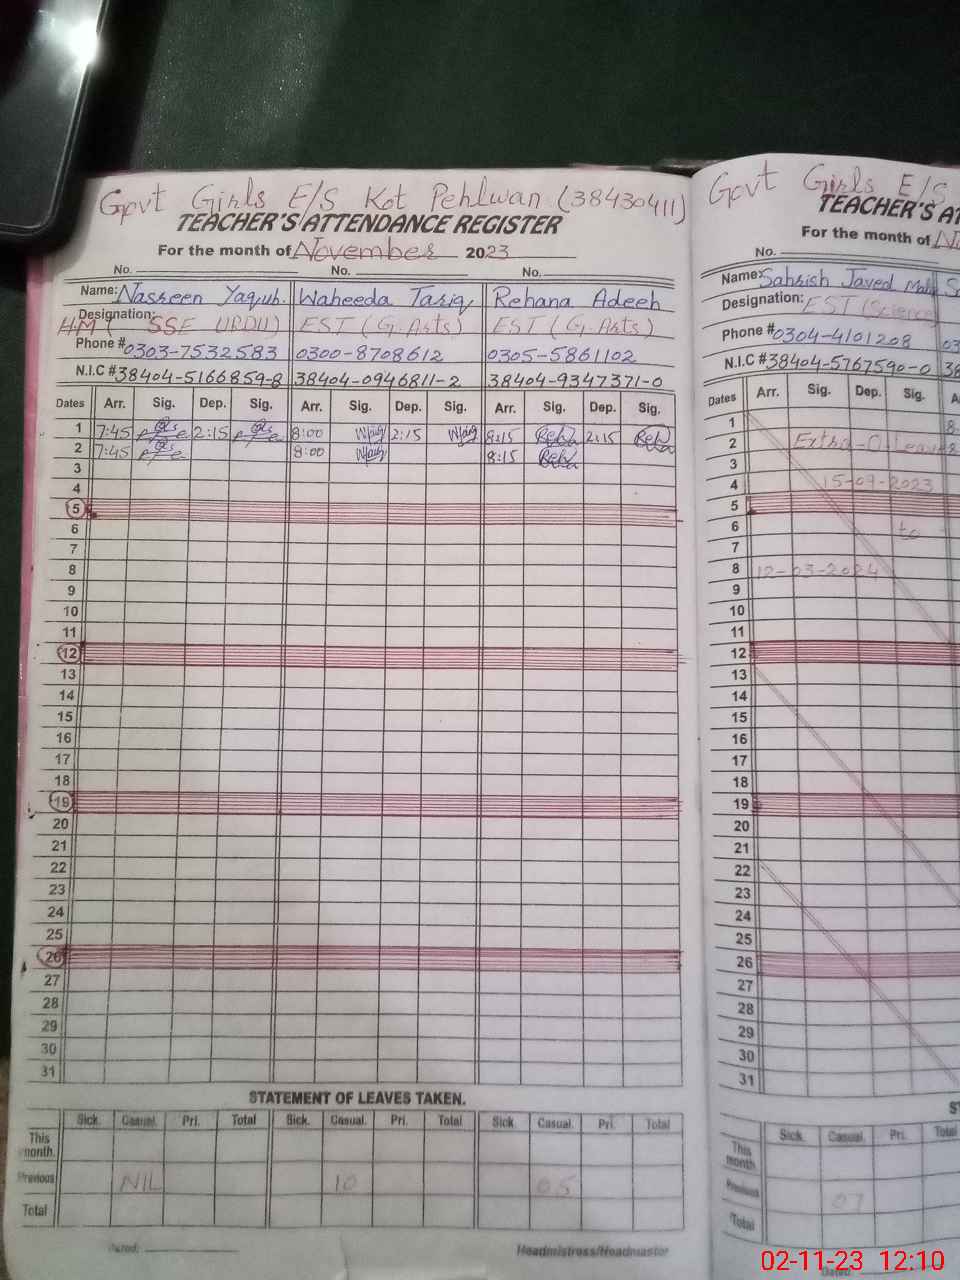 Govt Girls E/S Kot Pehlwan (38430411)
TEACHER'S ATTENDANCE REGISTER
For the month of November 2023
No. No. No.
Name: Nasreen Yaqub. Waheeda Tariq Rehana Adeeb
Designation: HM ( SSE URDU) EST (G.Arts) EST (G.Arts)
Phone # 0303-7532583 0300-8708612 0305-5861102
N.I.C # 38404-5166859-8 38404-0946811-2 38404-9347371-0
Dates Arr. Sig. Dep. Sig. Arr. Sig. Dep. Sig. Arr. Sig. Dep. Sig.
1 7:45 2:15 8:00 2:15 8:15 2:15
2 7:45 8:00 8:15
3
4
5
6
7
8
9
10
11
12
13
14
15
16
17
18
19
20
21
22
23
24
25
26
27
28
29
30
31
STATEMENT OF LEAVES TAKEN.
Sick. Casual. Pri. Total Sick. Casual. Pri. Total Sick. Casual. Pri. Total
This
month.
Previous NIL 10 05
Total
Headmistress/Headmaster
Govt Girls E/S
TEACHER'S AT
For the month of
No.
Name: Sahrish Javed
Designation: EST (Science)
Phone # 0304-4101208 03
N.I.C # 38404-5767590-0 38
Dates Arr. Sig. Dep. Sig.
1
2 Extra-O-Leave
3
4 15-09-2023
5
6 to
7
8 12-03-2024
9
10
11
12
13
14
15
16
17
18
19
20
21
22
23
24
25
26
27
28
29
30
31
Sick. Casual. Pri. Total
This
month.
Previous 07
Total
Dated:
02-11-23 12:10